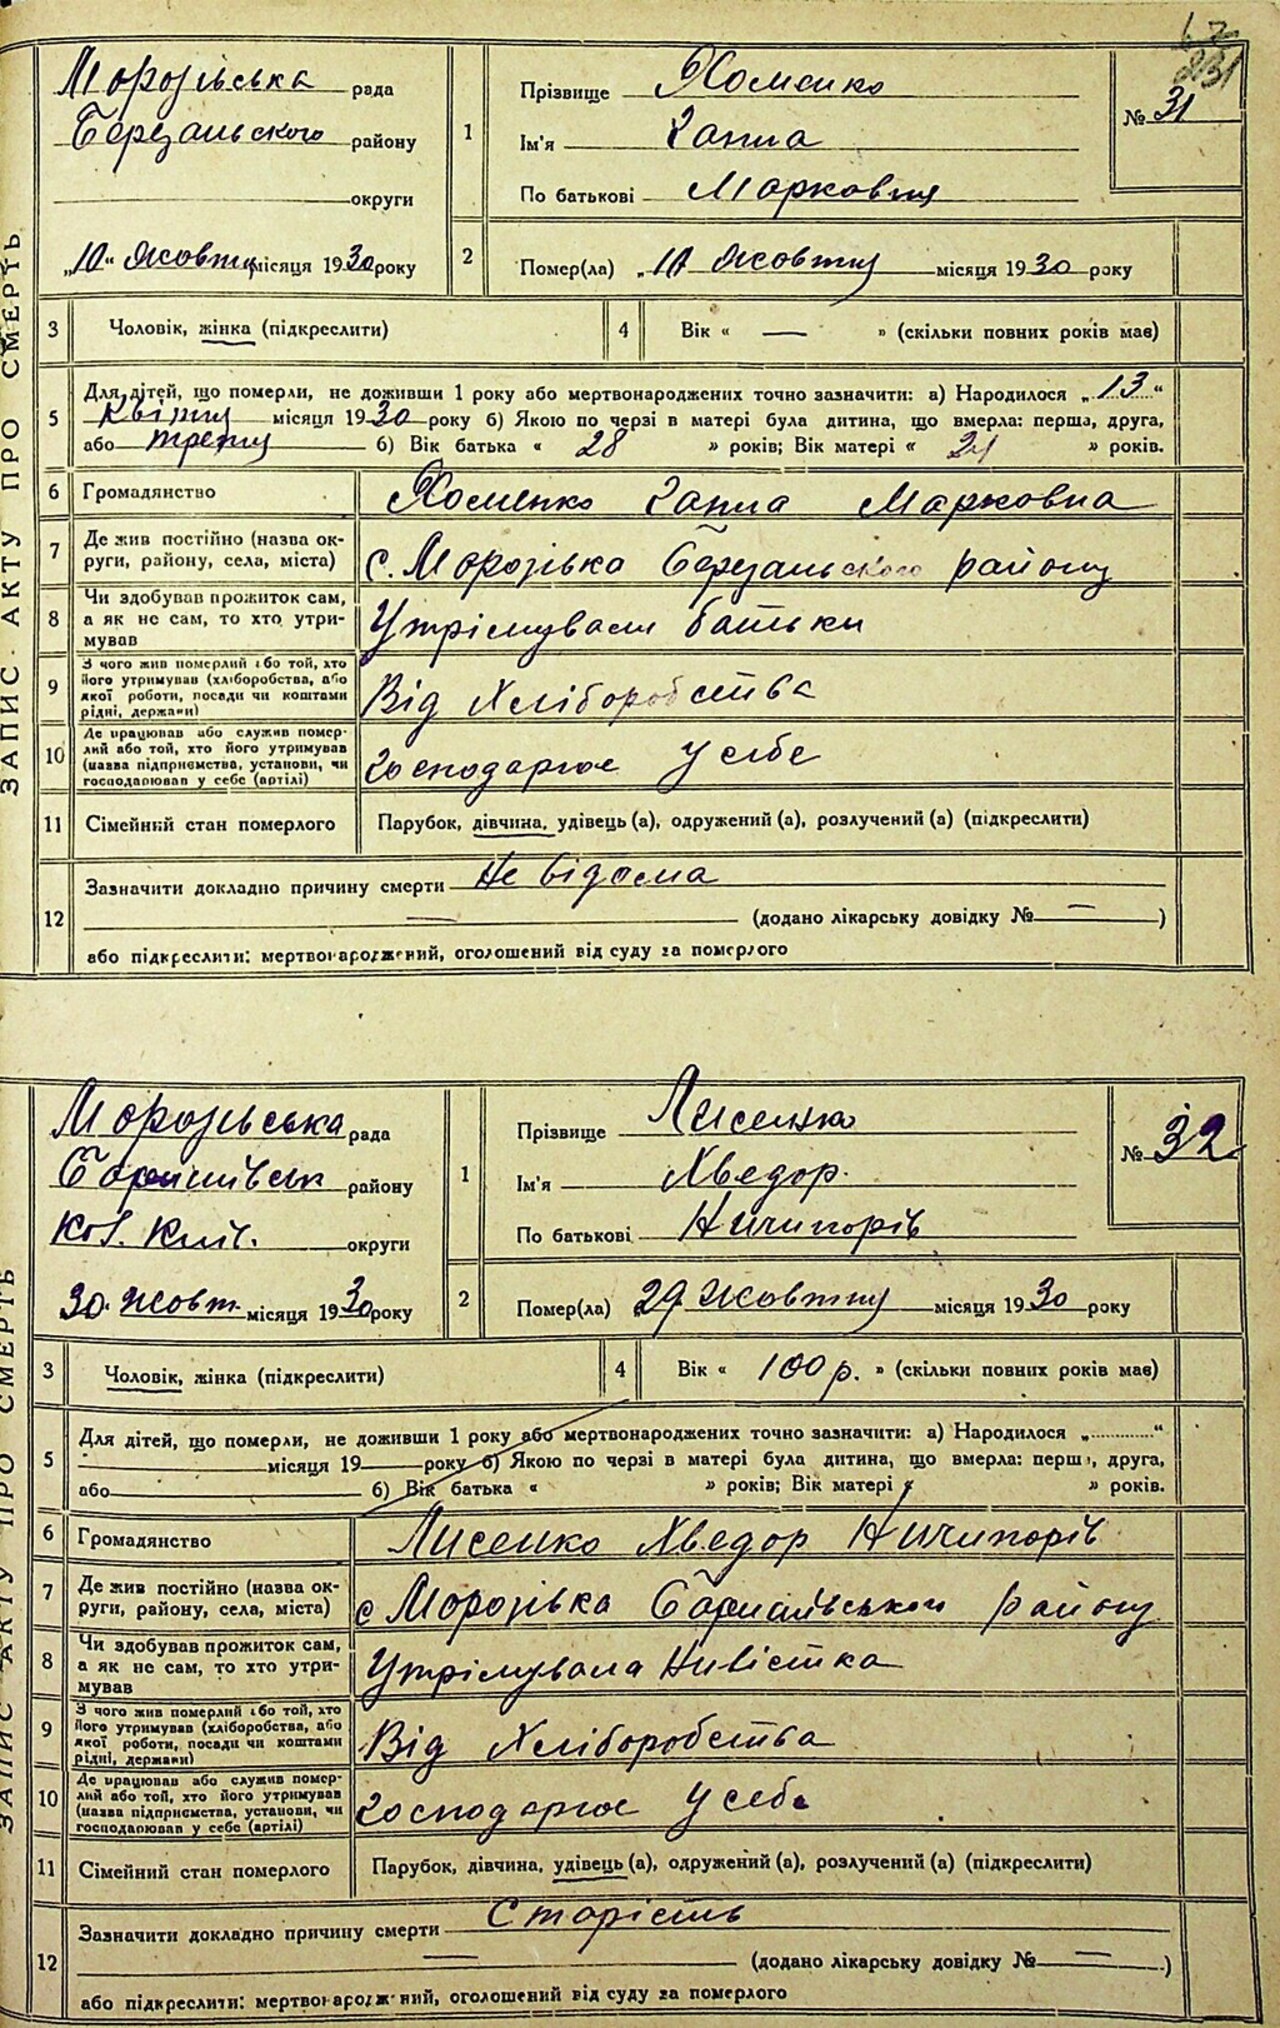 231
ЗАПИС АКТУ ПРО СМЕРТЬ
Морозівська рада
Березанського району
округи
„10“ Жовтня місяця 1930 року
1
Прізвище Хоменко
Ім'я Ганна
По батькові Марковна
№ 31
2
Помер(ла) „10 Жовтня місяця 1930 року
3
Чоловік, жінка (підкреслити)
4
Вік « — » (скільки повних років мав)
5
Для дітей, що померли, не доживши 1 року або мертвонароджених точно зазначити: а) Народилося „13“
Квітня місяця 1930 року б) Якою по черзі в матері була дитина, що вмерла: перша, друга,
або третя б) Вік батька « 28 » років; Вік матері « » років.
6
Громадянство
Хоменко Ганна Марковна
7
Де жив постійно (назва ок-
руги, району, села, міста)
с. Морозівка Березанського району
8
Чи здобував прожиток сам,
а як не сам, то хто утри-
мував
Утрімували батьки
9
З чого жив померлий або той, хто
його утримував (хліборобства, або
якої роботи, посади чи коштами
рідні, держави)
Від Хліборобства
10
Де працював або служив помер-
лий або той, хто його утримував
(назва підприємства, установи, чи
господарював у себе (артілі)
Господарює у себе
11
Сімейний стан померлого
Парубок, дівчина, удівець (а), одружений (а), розлучений (а) (підкреслити)
12
Зазначити докладно причину смерти Не відома
— (додано лікарську довідку № — )
або підкреслити: мертвонароджений, оголошений від суду за померлого
ЗАПИС АКТУ ПРО СМЕРТЬ
Морозівська рада
Баришівськ району
Київ. округи
30 Жовт. місяця 1930 року
1
Прізвище Лисенко
Ім'я Хведор.
По батькові Ничипорів
№ 32
2
Помер(ла) „29 Жовтня місяця 1930 року
3
Чоловік, жінка (підкреслити)
4
Вік « 100 р. » (скільки повних років мав)
5
Для дітей, що померли, не доживши 1 року або мертвонароджених точно зазначити: а) Народилося „............“
місяця 19 року б) Якою по черзі в матері була дитина, що вмерла: перша, друга,
або б) Вік батька « » років; Вік матері « » років.
6
Громадянство
Лисенко Хведор Ничипорів
7
Де жив постійно (назва ок-
руги, району, села, міста)
с Морозівка Баришівського району
8
Чи здобував прожиток сам,
а як не сам, то хто утри-
мував
Утрімувала Нивістка
9
З чого жив померлий або той, хто
його утримував (хліборобства, або
якої роботи, посади чи коштами
рідні, держави)
Від Хліборобства
10
Де працював або служив помер-
лий або той, хто його утримував
(назва підприємства, установи, чи
господарював у себе (артілі)
Господарює у себе
11
Сімейний стан померлого
Парубок, дівчина, удівець (а), одружений (а), розлучений (а) (підкреслити)
12
Зазначити докладно причину смерти Старість
— (додано лікарську довідку № — )
або підкреслити: мертвонароджений, оголошений від суду за померлого